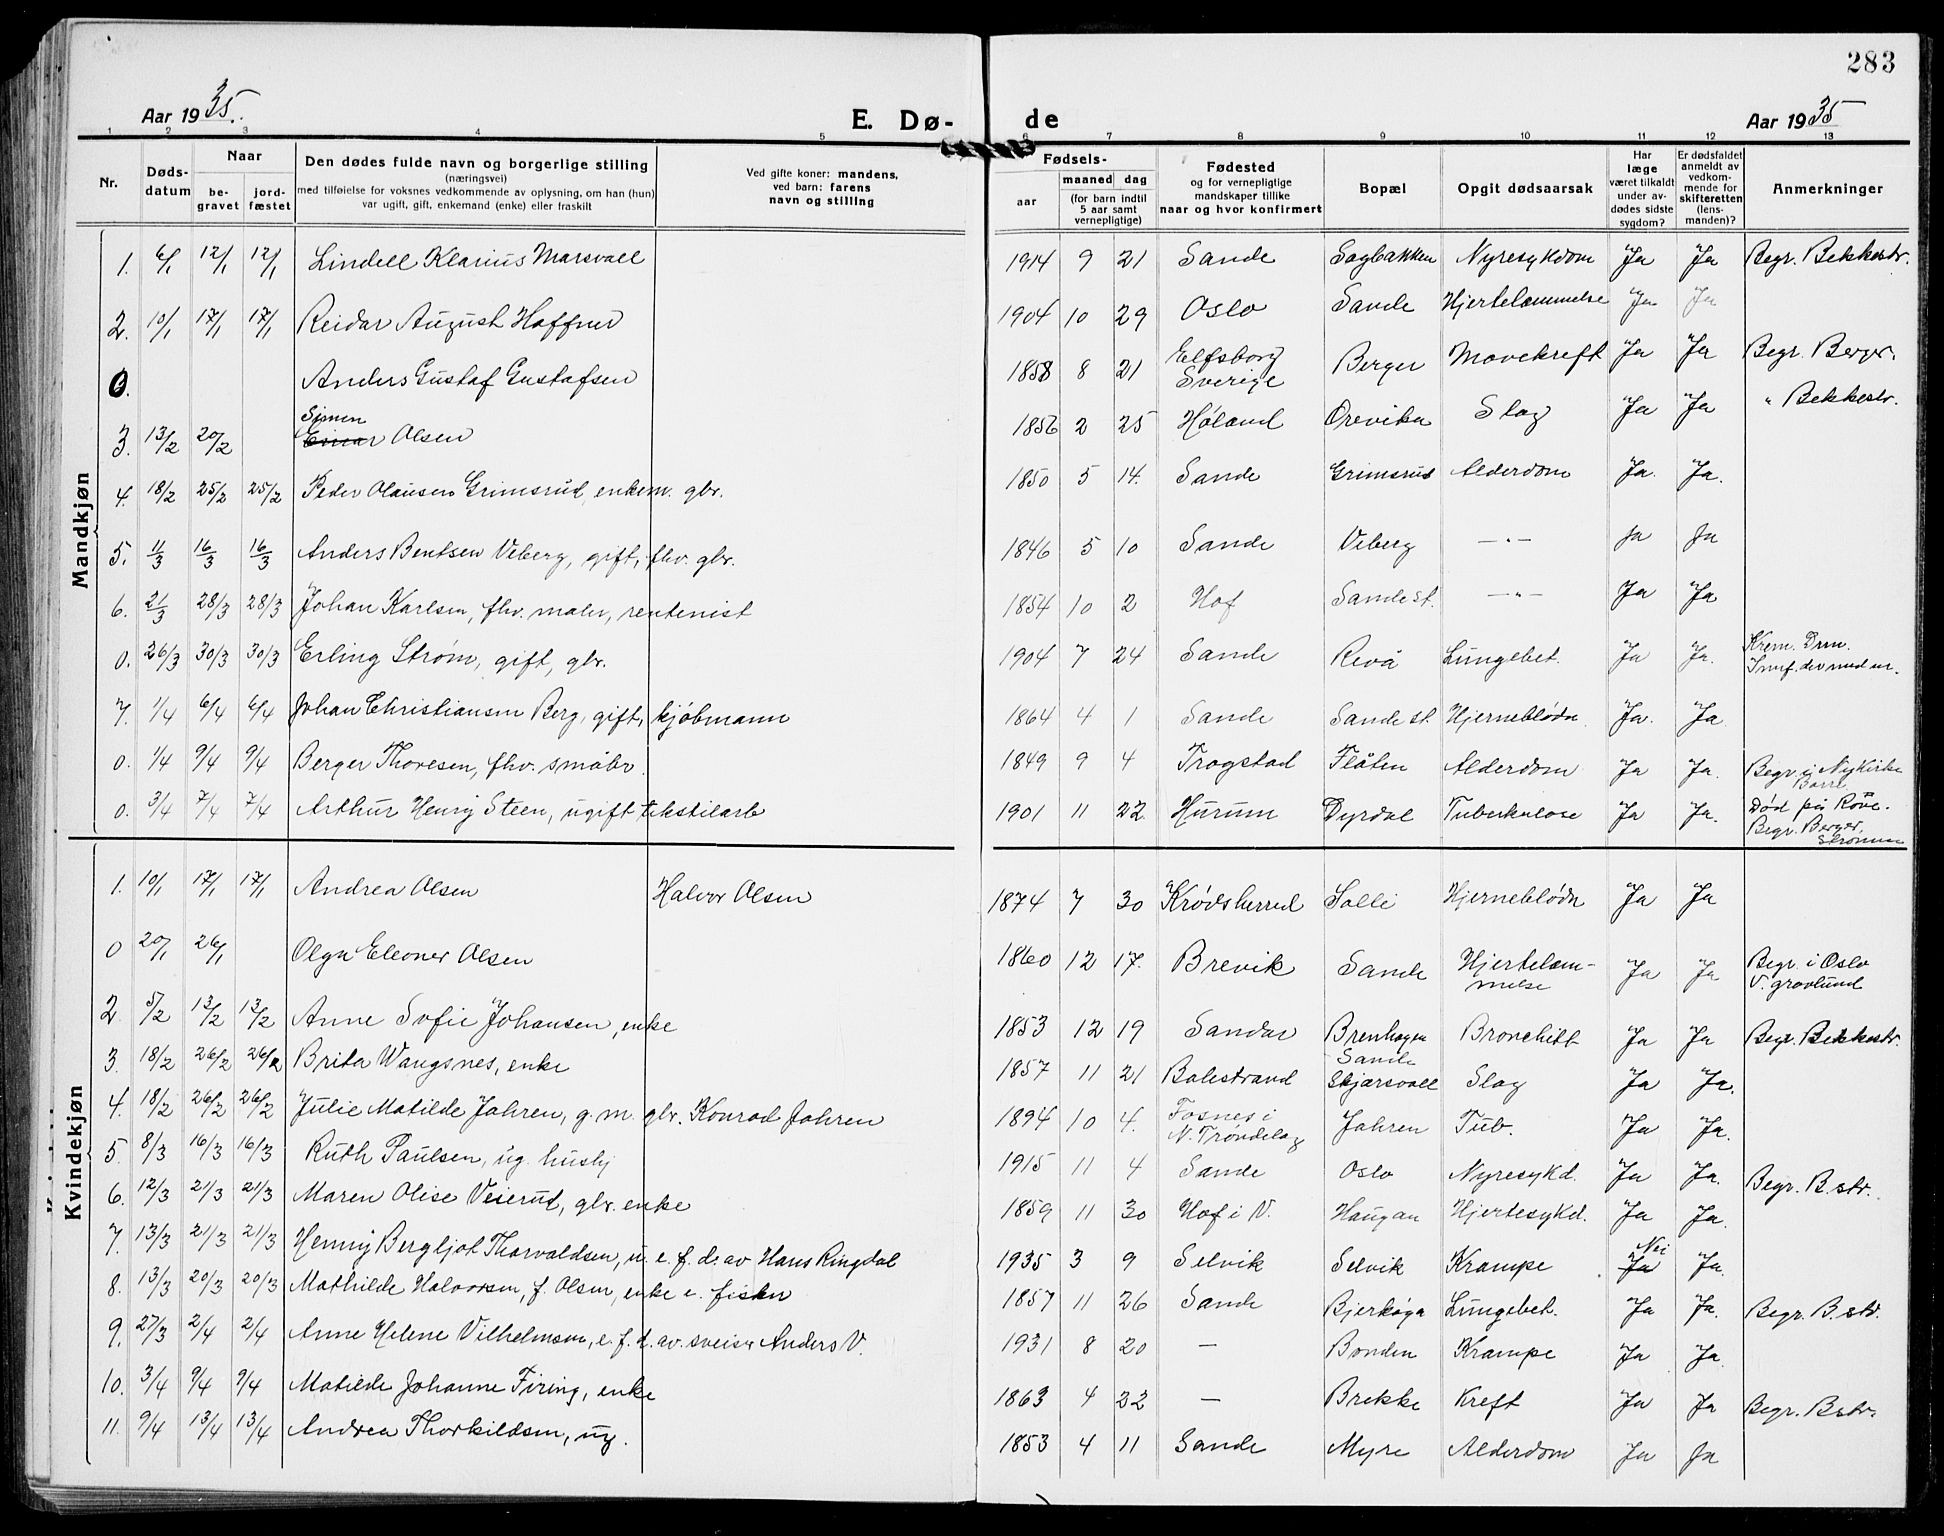 283
Aar 1935.
E. Dø-
de
Aar 1935
1 2 3 4 5 6 7 8 9 10 11 12 13
Nr.
Døds-
datum
Naar
be-
gravet
jord-
fæstet
Den dødes fulde navn og borgerlige stilling
(næringsvei)
med tilføielse for voksnes vedkommende av oplysning, om han (hun)
var ugift, gift, enkemand (enke) eller fraskilt
Ved gifte koner: mandens,
ved barn: farens
navn og stilling
Fødsels-
aar
maaned dag
(for barn indtil
5 aar samt
vernepligtige)
Fødested
og for vernepligtige
mandskaper tillike
naar og hvor konfirmert
Bopæl
Opgit dødsaarsak
Har
læge
været tilkaldt
under av-
dødes sidste
sygdom?
Er dødsfaldet
anmeldt av
vedkom-
mende for
skifteretten
(lens-
manden)?
Anmerkninger
Mandkjøn
1. 6/1 12/1 12/1 Lindell Klarius Marsvall 1914 9 21 Sande Sagbakken Nyresykdom Ja Ja Begr. Bekkestr.
2. 10/1 17/1 17/1 Reidar August Haffner 1904 10 29 Oslo Sande Hjertelammelse Ja Ja
0. Anders Gustaf Gustafsen 1858 8 21 Elfsborg Sverige Berger Mavekreft Ja Ja Begr. Berger.
3. 13/2 20/2 Simen Olsen 1856 2 25 Høland Orevika Slag Ja Ja " Bekkestr.
4. 18/2 25/2 25/2 Peder Olausen Grimsrud, enkem. gbr. 1850 5 14. Sande Grimsrud Alderdom Ja. Ja.
5. 11/3 16/3 16/3 Anders Bentsen Viberg, gift, fhv. gbr. 1846 5 10 Sande Viberg —"— Ja Ja
6. 21/3 28/3 28/3 Johan Karlsen, fhv. maler, rentenist 1854 10 2 Hof Sande st. —"— Ja Ja
0. 26/3 30/3 30/3 Erling Strøm, gift, gbr. 1904 7 24 Sande Revå Lungebet. Ja Ja. Krem. Drm.
7. 1/4 6/4 6/4 Johan Christiansen Berg, gift, kjøbmann 1864 4 1 Sande Sande st. Hjerneblødn. Ja. Ja
0. 1/4 9/4 9/4 Berger Thoresen, fhv. småbr. 1849 9 4 Trøgstad Flåten Alderdom Ja Ja. Begr. i Nykirke Borre
0. 3/4 7/4 7/4 Arthur Henry Steen, ugift tekstilarb 1901 11 22 Hurum Dyrdal Tuberkulose Ja Ja. Død på Røve. Begr. Berger, Strømm
Kvindekjøn
1. 10/1 17/1 17/1 Andrea Olsen Halvor Olsen 1874 7 30 Krødsherred Solli Hjerneblødn Ja Ja
0 20/1 26/1 Olga Eleoner Olsen 1860 12 17. Brevik Sande Hjertelam-
melse Ja Ja Begr. i Oslo
V. gravlund
2. 5/2 13/2 13/2 Anne Sofie Johansen, enke 1853 12 19 Sandar Brenhagen Sande Bronchitt Ja Ja Begr. Bekkestr.
3. 18/2 26/2 26/2 Brita Wangsnes, enke 1857 11 21 Balestrand Skjærsvall Slag Ja Ja.
4. 18/2 26/2 26/2 Julie Matilde Jahren, g. m. gbr. Konrad Jahren 1894 10 4. Fosnes i N. Trøndelag Jahren Tub. Ja Ja.
5. 8/3 16/3 16/3 Ruth Paulsen, ug. hushj 1915 11 4 Sande Oslo Nyresykd. Ja Ja. Begr. B.str.
6. 12/3 21/3 21/3 Maren Olise Veierud, gbr. enke 1859 11 30 Hof i V. Haugan Hjertesykd. Ja Ja.
7. 13/3 21/3 21/3 Henny Bergljot Thorvaldsen, u. e. f. d. av Hans Ringdal 1935 3 9 Selvik Selvik Krampe Nei Ja Ja.
8. 13/3 20/3 20/3 Mathilde Halvorsen, f. Olsen, enke e. fisker 1857 11 26 Sande Bjerkøya Lungebet. Ja Ja. Begr. B.str.
9. 27/3 2/4 2/4 Anne Helene Vilhelmsen, e. f. d. av. sveiser Anders V. 1931 8 20 — Bonden Krampe Ja Ja.
10. 3/4 9/4 9/4 Matilde Johanne Firing, enke 1863 4 22 — Brekke Kreft Ja Ja Begr. B.str.
11. 9/4 13/4 13/4 Andrea Thorkildsen, ug. 1853 4 11 Sande Myre Alderdom Ja Ja